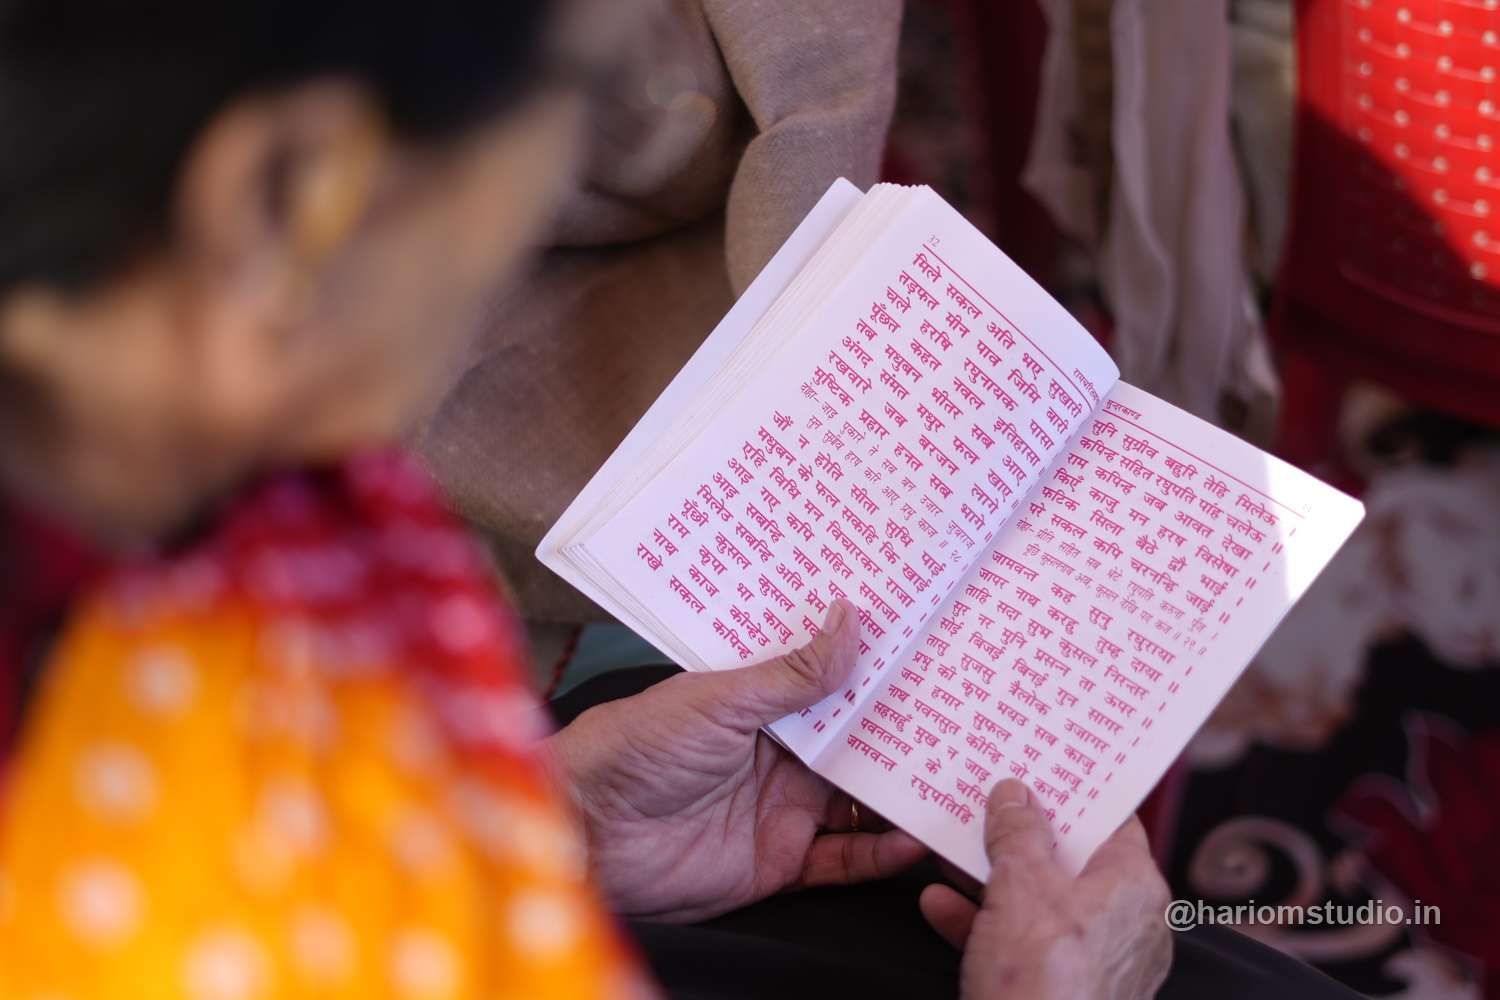 32
मिले सकल अति भए सुखारी
तड़फत मीन पाव जिमि बारी
चले हरषि रघुनायक पासा
पूँछत कहत नवल इतिहासा
तब मधुबन भीतर सब आए
अंगद संमत मधुर फल खाए
रखवारे जब बरजन लागे
मुष्टिक प्रहार हनत सब भागे
दोहा– जाइ पुकारे ते सब बन उजार जुबराज
सुनि सुग्रीव हरष कपि करि आए प्रभु काज ॥ २८
जौं न होति सीता सुधि पाई
मधुबन के फल सकहिं कि खाई
एहि बिधि मन बिचार कर राजा
आइ गए कपि सहित समाजा
आइ सबन्हि नावा
मिलेउ सबन्हि अति प्रेम
पूँछी कुसल कुसल पद
राम कृपाँ भा काजु
नाथ काजु कीन्हेउ
राखे सकल कपिन्ह
सुन्दरकाण्ड
सुनि सुग्रीव बहुरि तेहि मिलेऊ ।
कपिन्ह सहित रघुपति पहिं चलेऊ ॥
राम कपिन्ह जब आवत देखा ।
किएँ काजु मन हरष बिसेषा ॥
फटिक सिला बैठे द्वौ भाई ।
परे सकल कपि चरनन्हि जाई ॥
दोहा– प्रीति सहित सब भेटे रघुपति करुना पुंज ।
पूछी कुसल नाथ अब, कुसल देखि पद कंज ॥ २९ ॥
जामवन्त कह सुनु रघुराया ।
जापर नाथ करहु तुम्ह दाया ॥
ताहि सदा सुभ कुसल निरन्तर ।
सुर नर मुनि प्रसन्न ता ऊपर ॥
सोई बिजई बिनई गुन सागर ।
तासु सुजसु त्रैलोक उजागर ॥
प्रभु की कृपा भयउ सब काजू ।
जन्म हमार सुफल भा आजू ॥
नाथ पवनसुत कीन्हि जो करनी ।
सहसहुँ मुख न जाइ
पवनतनय के चरित
जामवन्त रघुपतिहि
@hariomstudio.in